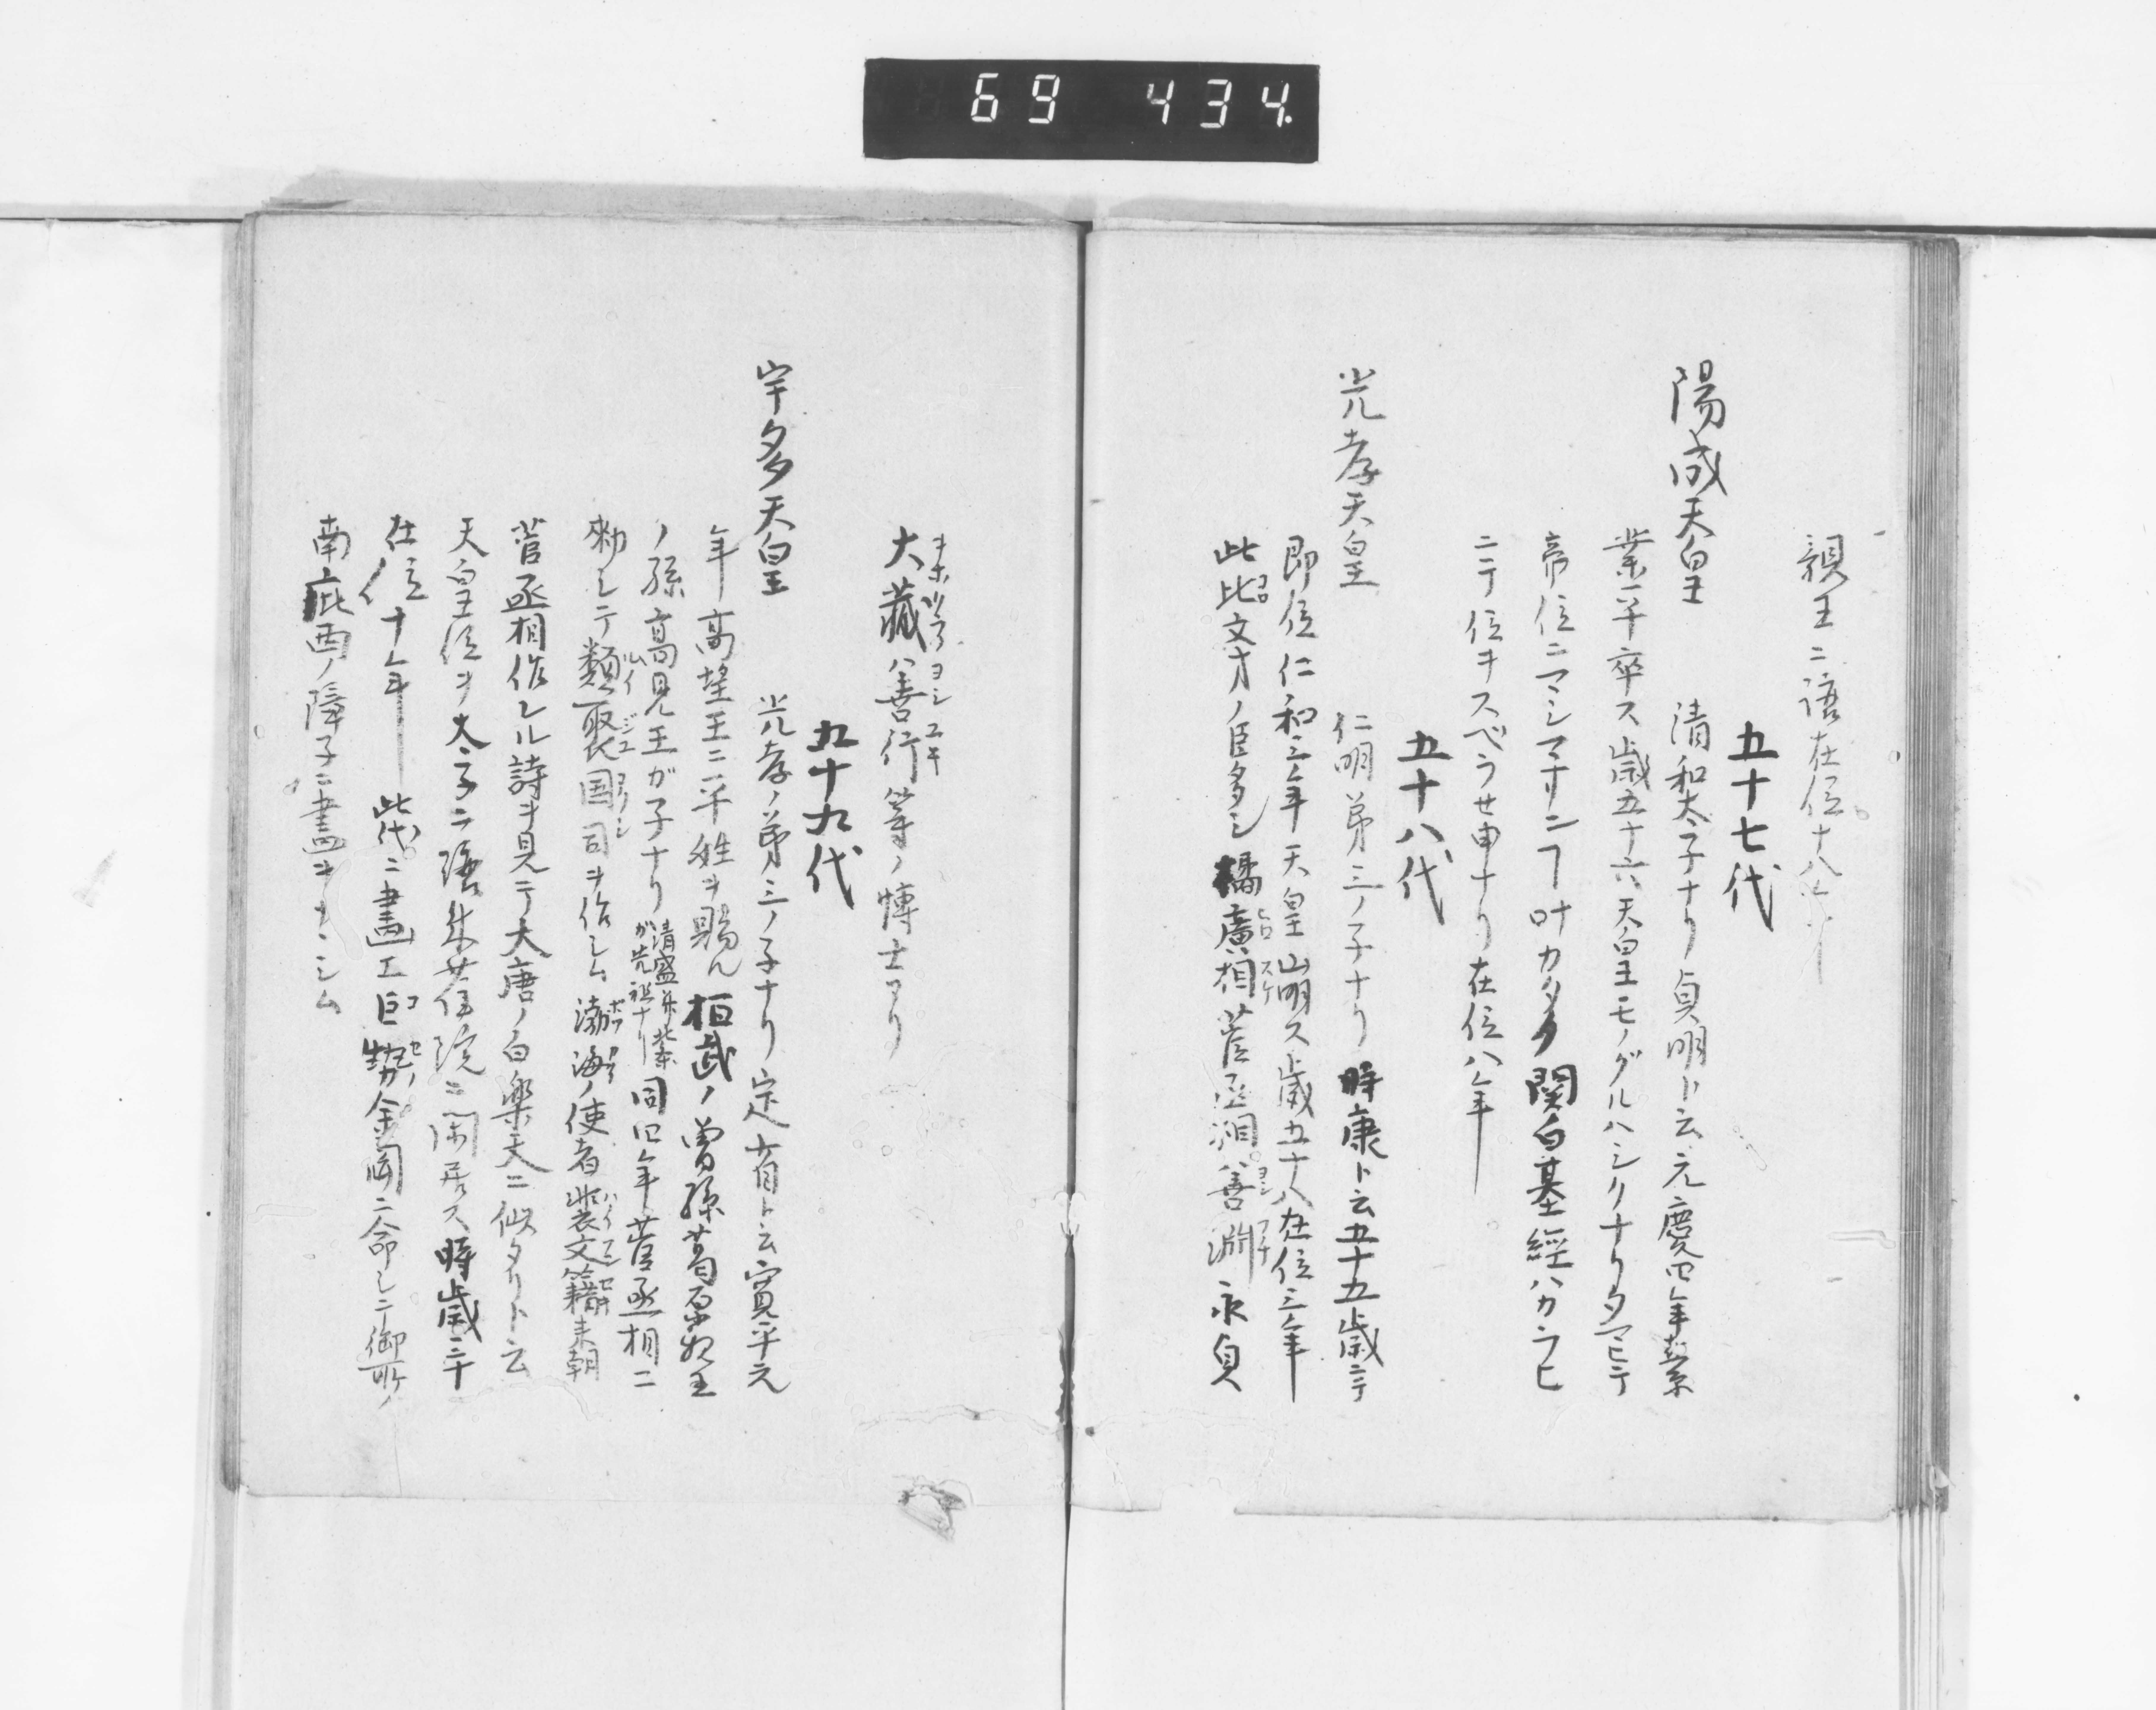 69 434.
親王ニ譲在位十八年
五十七代
陽成天皇 清和太子ナリ貞明ト云元慶四年業
業平卒ス歳五十六天皇モノグルハシクナリタマヒテ
帝位ニマシマサンヿ叶カタク関白基經ハカラヒ
ニテ位ヲスベラせ申ナリ在位八年
五十八代
光孝天皇 仁明第三ノ子ナリ時康ト云五十五歳ニテ
即位仁和三年天皇崩ス歳五十八在位三年
此比文才ノ臣多シ橘廣相菅丞相善淵永貞
大藏善行等ノ博士アリ
五十九代
宇多天皇 光孝ノ第三ノ子ナリ定省ト云寛平元
年高望王ニ平姓ヲ賜ル桓武ノ曽孫葛原親王
ノ孫高見王ガ子ナリ清盛
ガ先祖ナリ同四年菅丞相ニ
勅シテ類聚国司ヲ作シム渤海ノ使者裴文籍来朝
菅丞相作レル詩ヲ見テ大唐ノ白樂天ニ似タリト云
天皇位ヲ太子ニ譲朱雀院ニ閑居ス時歳三十
在位十年 此代ニ畫工巨勢金岡ニ命シテ御所ノ
南庇西ノ障子ニ畫ヲカヽシム